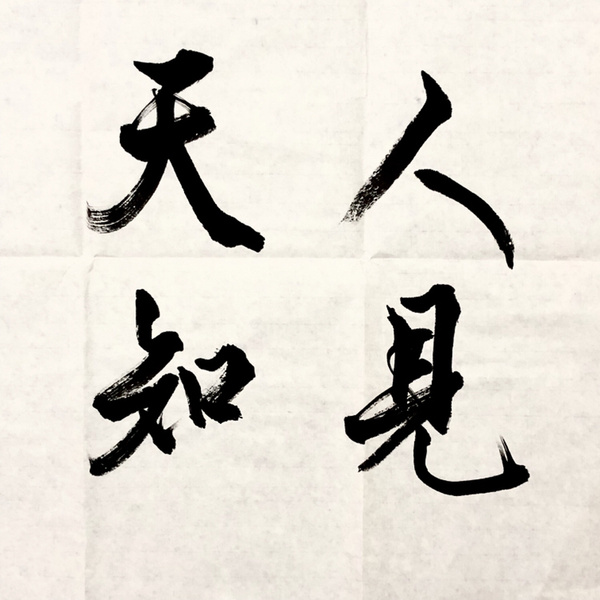 人見
天知